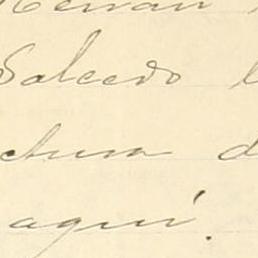 Hernán
Salcedo l
ctura d
aquí.